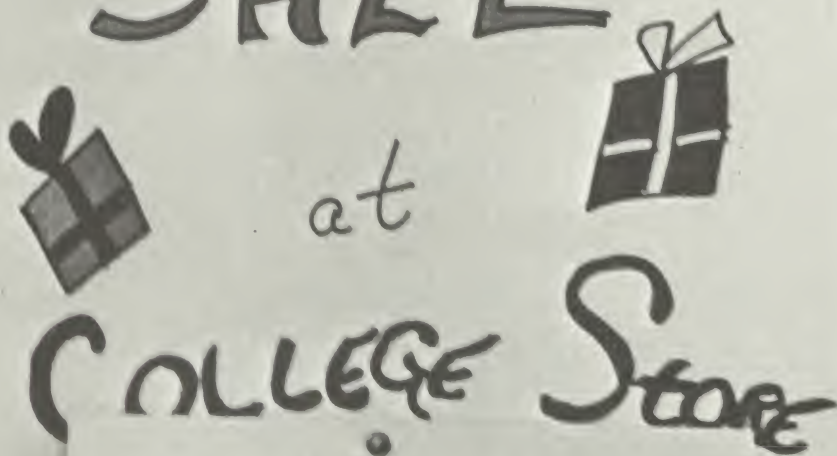 SALE
at
COLLEGE Store